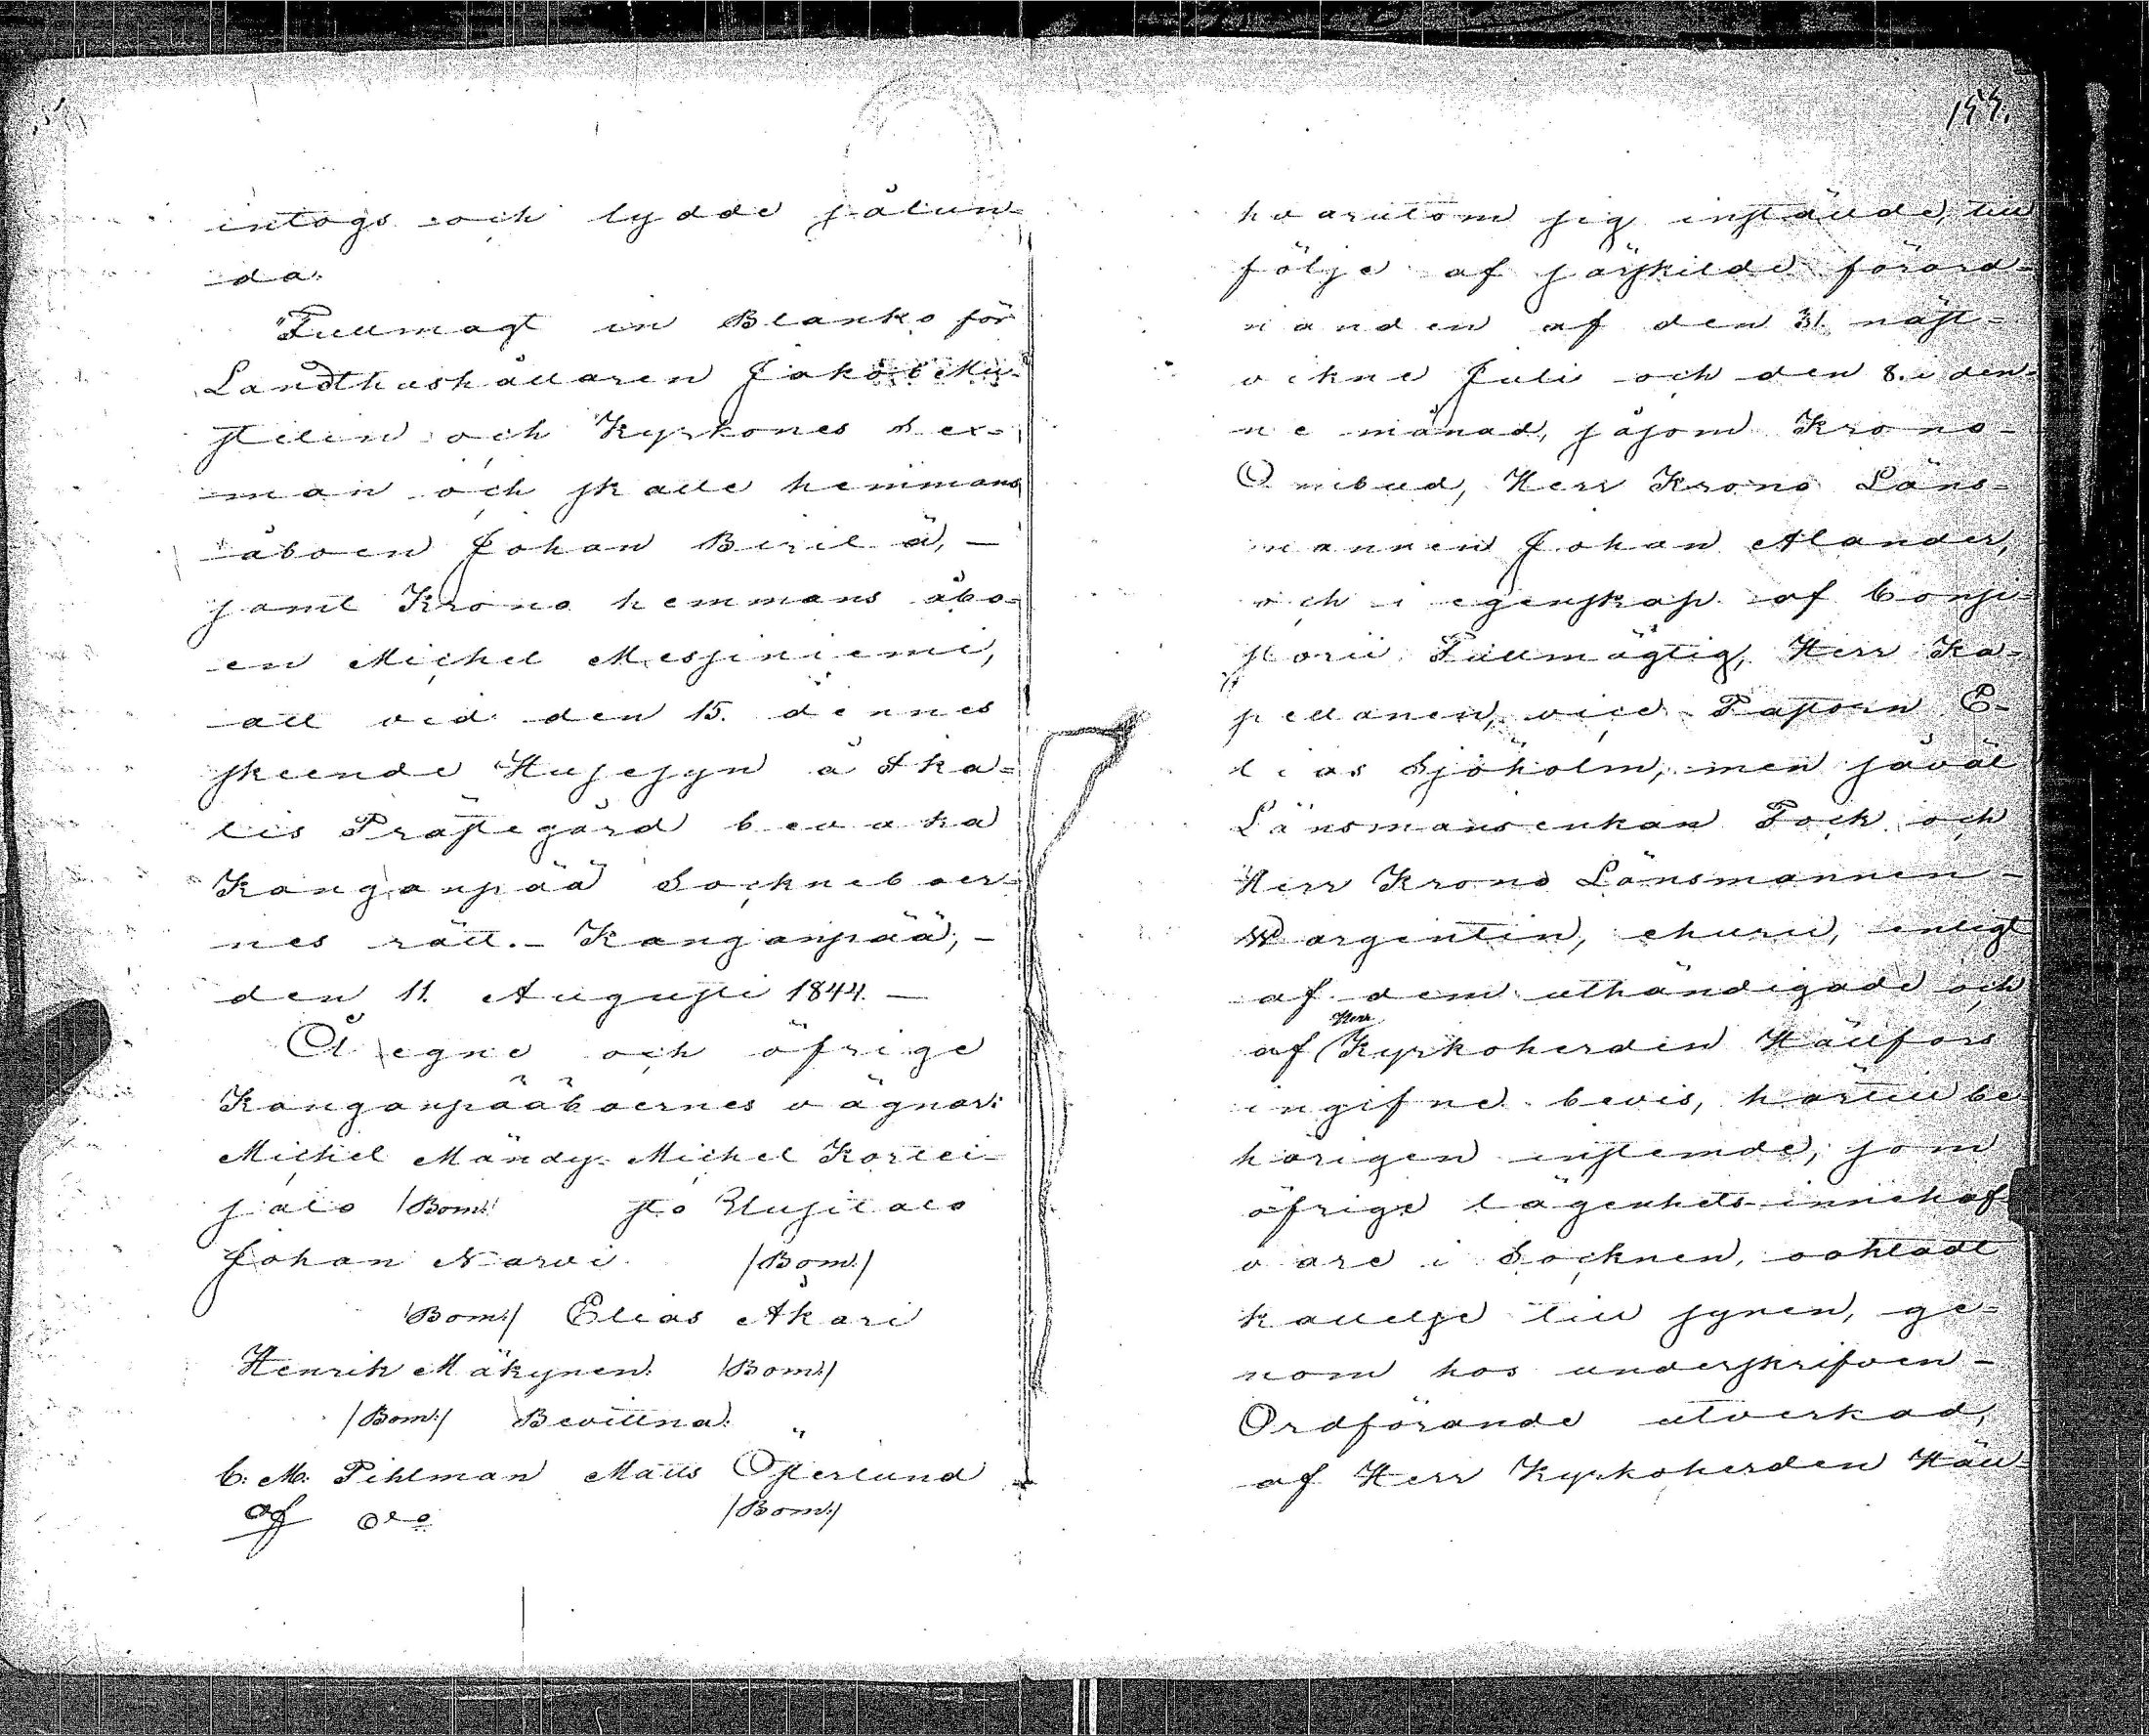 intogs och lydde sålun-
da.
"Fullmagt in Blanko för
Landthushållaren Jakob Mu-
stelin och Kyrkones Sex-
man och skatte hemmans
åboen Johan Birilä, -
samt Krono hemmans åbo-
en Michel Messiniemi,
att vid den 15. dennes
skeende Husesyn å Ika-
lis Prästegård bevaka
Kanganpää Sockneboer-
nes rätt. - Kanganpää, -
den 11. Augusti 1844. -
Å egne och öfrige
Kanganpääboernes vägnar:
Michel Mändy- Michel Kortei-
salo /Bom:/ sto Uusitalo
Johan Narvi /Bom:/
/Bom:/ Elias Akari
Henrik Mäkynen /Bom:/
/Bom:/ Bevittna:
C: M: Pihlman Matts Österlund
af /Bom:/
199.
hvarutom sig inställde, till
följe af särskilde förord-
nanden af den 31. näst-
vikne Juli och den 8. i den-
ne månad, såsom Krono-
Ombud, Herr Krono Läns-
mannen Johan Alander,
och i egenskap af Consi-
storii Fullmägtig, Herr Ka-
pellanen, vice Pastorn E-
lias Sjöholm, men såväl
Länsmansenkan Fock och
Herr Krono Länsmannen -
Wargentin, ehuru, enligt
af dem uthändigade och
af Herr Kyrkoherden Hällfors
ingifne bevis, härtill be
hörigen instemde, som
öfrige lägenhets-innehaf-
vare i Socknen, oaktadt
kallelse till synen, ge-
nom hos underskrifven -
Ordförande utverkad,
af Herr Kyrkoherden Häll-